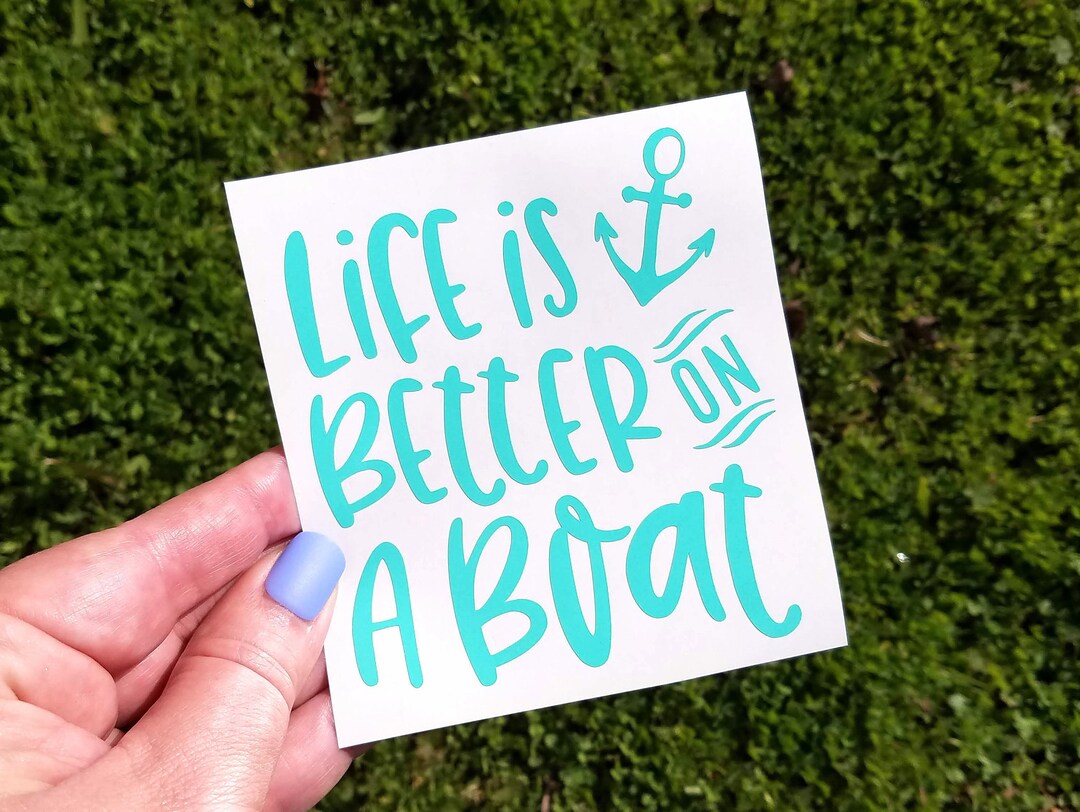 LiFE iS
BEttER ON
A BOat